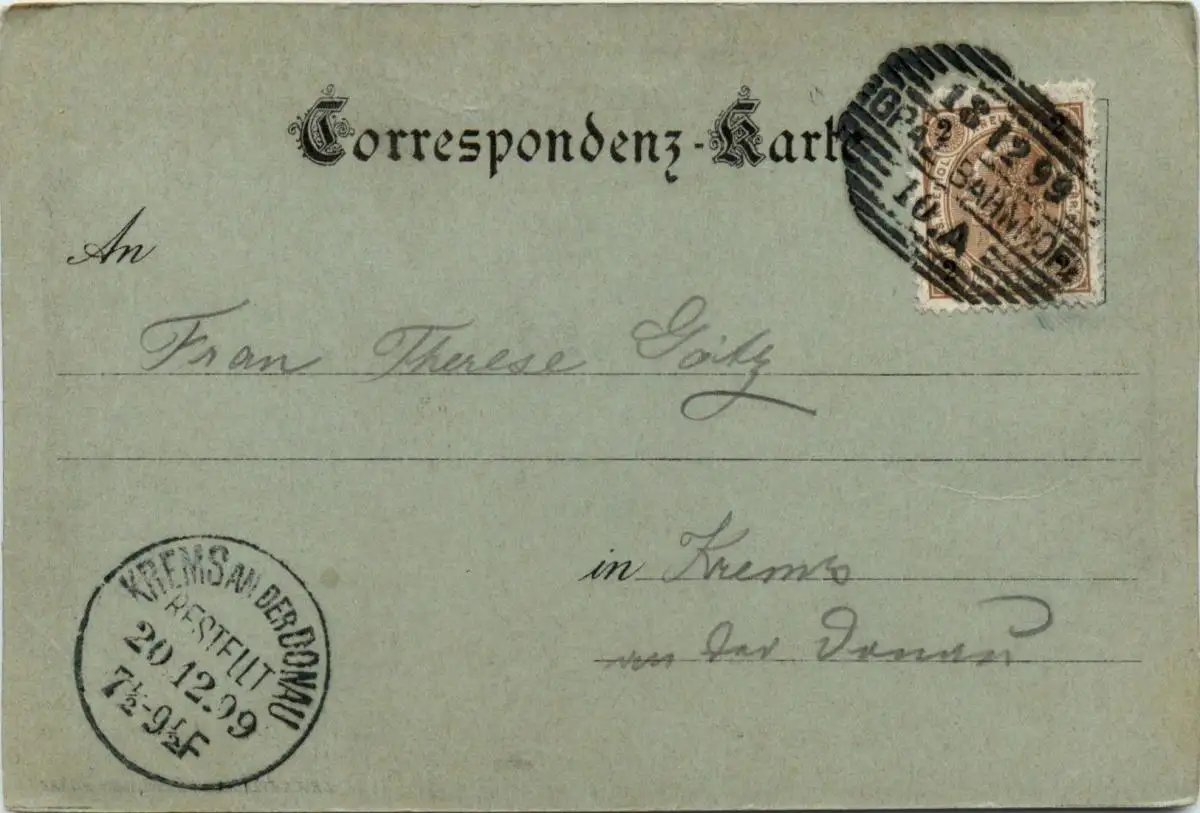 Correspondenz-Karte
18 12 99
BAHNHOF
10.A
2
An
Frau Therese Götz
in Krems
an der Donau
KREMS AN DER DONAU
BESTELLT
20.12.99
7½-9½F